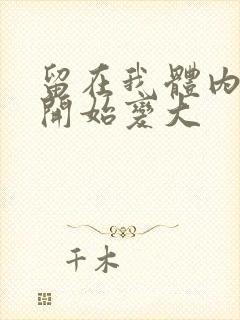 留在我體内
開始變大
千木